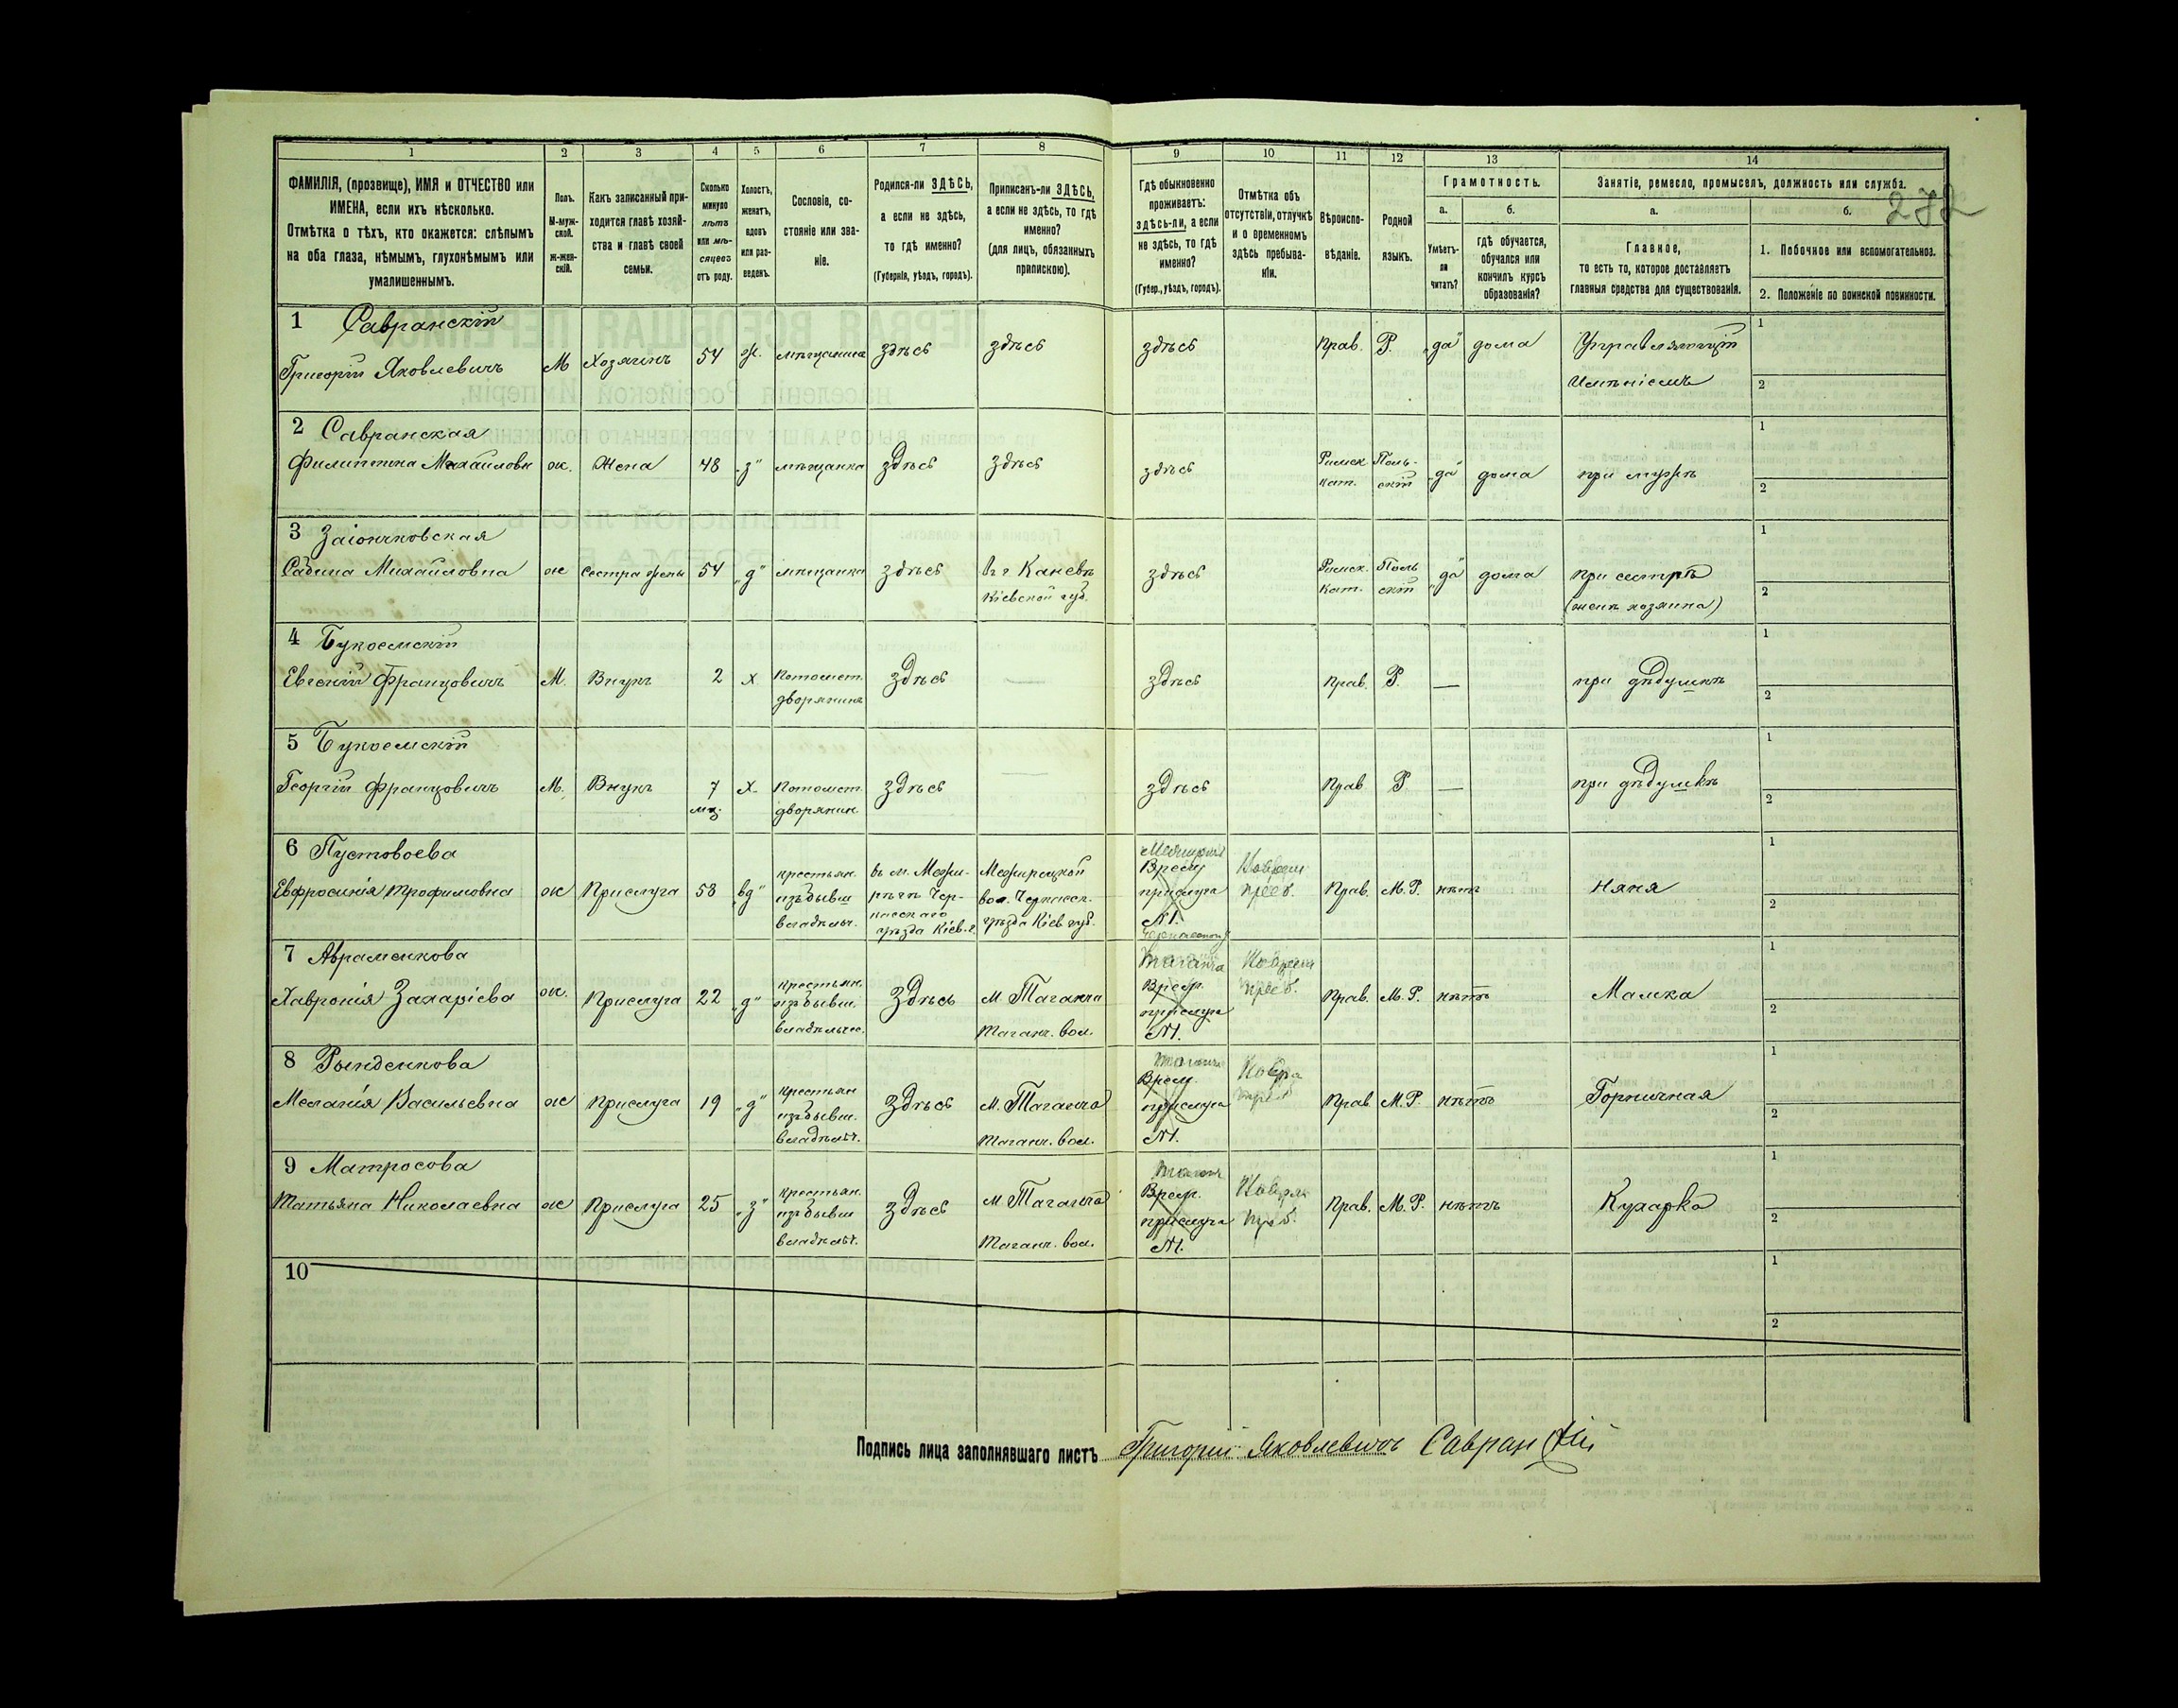 1 2 3 4 5 6 7 8 9 10 11 12 13 14
ФАМИЛІЯ, (прозвище), ИМЯ и ОТЧЕСТВО или
ИМЕНА, если ихъ нѣсколько.
Отмѣтка о тѣхъ, кто окажется: слѣпымъ
на оба глаза, нѣмымъ, глухонѣмымъ или
умалишеннымъ.
Полъ.
М-муж-
ской.
ж-жен-
скій.
Какъ записанный при-
ходится главѣ хозяй-
ства и главѣ своей
семьи.
Сколько
минуло
лѣтъ
или мѣ-
сяцевъ
отъ роду.
Холостъ,
женатъ,
вдовъ
или раз-
веденъ.
Сословіе, со-
стояніе или зва-
ніе.
Родился-ли ЗДѢСЬ,
а если не здѣсь,
то гдѣ именно?
(Губернія, уѣздъ, городъ).
Приписанъ-ли ЗДѢСЬ,
а если не здѣсь, то гдѣ
именно?
(для лицъ, обязанныхъ
припискою).
Гдѣ обыкновенно
проживаетъ:
здѣсь-ли, а если
не здѣсь, то гдѣ
именно?
(Губер., уѣздъ, городъ).
Отмѣтка объ
отсутствіи, отлучкѣ
и о временномъ
здѣсь пребыва-
ніи.
Вѣроиспо-
вѣданіе.
Родной
языкъ.
Грамотность.
а.
Умѣетъ-
ли
читать?
б.
гдѣ обучается,
обучался или
кончилъ курсъ
образованія?
Занятіе, ремесло, промыселъ, должность или служба.
а.
Главное,
то есть то, которое доставляетъ
главныя средства для существованія.
б.
1. Побочное или вспомогательное.
2. Положеніе по воинской повинности.
272
1 Савранскій
Григорій Яковлевичъ М Хозяинъ 54 ж. мѣщанинъ здѣсь здѣсь здѣсь Прав. Р. „да" дома Управляющій
Имѣніемъ
1
2
2 Савранская
Филиппина Михайловн ж. Жена 48 „з" мѣщанка здѣсь здѣсь здѣсь Римск Поль- „да" дома при мужѣ
кат. скій
1
2
3 Заіончковская
Сабина Михайловна ж Сестра жены 54 „д" мѣщанка здѣсь въ г. Каневѣ здѣсь Римск. Поль „да" дома при сестрѣ
Кіевской губ. кат. скій (женѣ хозяина)
1
2
4 Букоемскій
Евгеній Францовичъ М. Внукъ 2 х Потомст. здѣсь — здѣсь Прав. Р. — при дѣдушкѣ
дворянинъ
1
2
5 Букоемскій
Георгій Францовичъ М. Внукъ 7 х. Потомст. здѣсь — здѣсь Прав Р — при дѣдушкѣ
мц. дворянин.
1
2
6 Пустовоева
Евфросинія Трофимовна ж Прислуга 53 „вд"
крестьян.
изъ бывш
владѣльч.
въ м. Межи-
рѣчѣ Чер-
касскаго
уѣзда Кіев. г.
Межирецкой
вол. Черкасск.
уѣзда Кіев губ.
Врем
прислуга
№1.
Прав. М.Р. нѣтъ Няня
1
2
7 Авраменкова
Хавронія Захаріева ж. Прислуга 22 „д"
крестьян.
изъ бывш.
владѣльчес.
Здѣсь
м. Таганча
Таганч. вол.
Таганча
Врем.
прислуга
№1.
Прав. М.Р. нѣтъ Мамка
1
2
8 Рынденкова
Меланія Васильевна ж Прислуга 19 „д"
крестьян
изъ бывш.
владѣльч.
Здѣсь
м. Таганча
Таганч. вол.
Врем.
прислуга
№1.
Прав М.Р. нѣтъ Горничная
1
2
9 Матросова
Татьяна Николаевна ж Прислуга 25 „з"
крестьян.
изъ бывш
владѣльч.
Здѣсь
м. Таганча
Таганч. вол.
Врем.
прислуга
№1.
Прав. М.Р. нѣтъ Кухарка
1
2
10
1
2
Подпись лица заполнявшаго листъ Григорій Яковлевичъ Савранскій